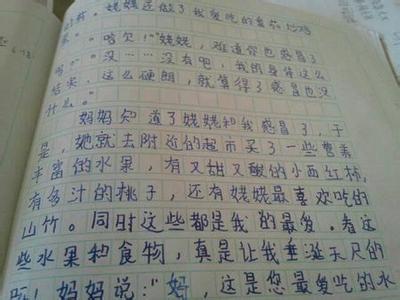 样。姥姥还做了我爱吃的番茄炒鸡
蛋。“哈欠!”“姥姥,难道你也感冒了
吗?”“没……没有吧,我的身体这么
结实,这么硬朗,就算得了感冒也没
什么。”
妈妈知道了姥姥和我感冒了,于
是,她就去附近的超市买了一些营养
丰富的水果,有又甜又酸的小西红柿,
有多汁的桃子,还有姥姥最喜欢吃的
山竹。同时这些都是我的最爱。看这
些水果和食物,真是让我垂涎三尺的
哦!妈妈说:“妈,这是您最爱吃的水